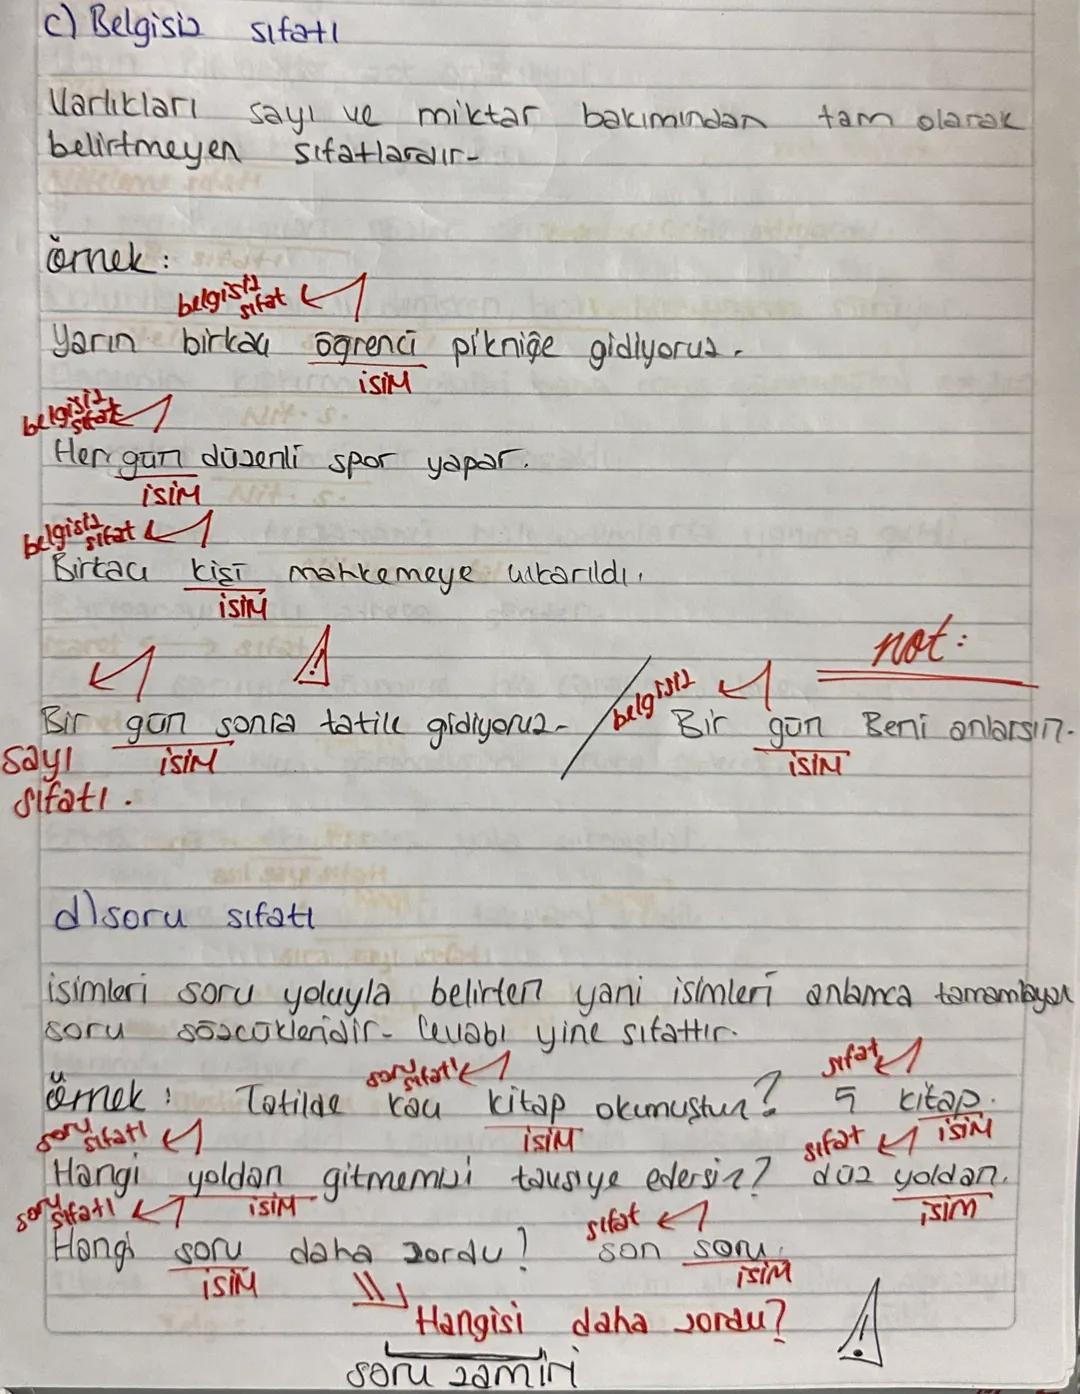 c) Belgisiz sıfatı
Varlıkları sayı ve miktar bakımından tam olarak
belirtmeyen sıfatlardır-
örnek:
belgisiz sıfat
Yarın birkaç öğrenci pikniğe gidiyoruz.
isim
belgisiz sıfat
Her gün düzenli spor yapar.
isim
belgisiz sıfat
Birkaç kişi mahkemeye çıkarıldı.
isim
not:
Bir gün sonra tatile gidiyoruz- / belgisiz Bir gün Beni anlarsın.
sayı sıfatı. isim isim
d) soru sıfatı
isimleri soru yoluyla belirten yani isimleri anlamca tamamlayan
soru sözcükleridir- Cevabı yine sıfattır.
soru sıfatı sıfat
örnek: Tatilde kaç kitap okumuştun? 5 kitap.
isim isim
soru sıfatı sıfat
Hangi yoldan gitmemizi tavsiye edersin? düz yoldan.
isim isim
soru sıfatı sıfat
Hangi soru daha zordu? son soru.
isim isim
Hangisi daha zordu?
soru zamiri